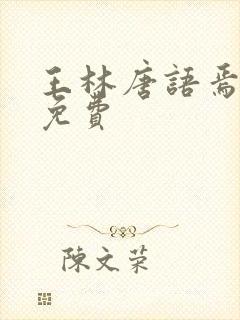 王林唐語焉
免費
陳文荣